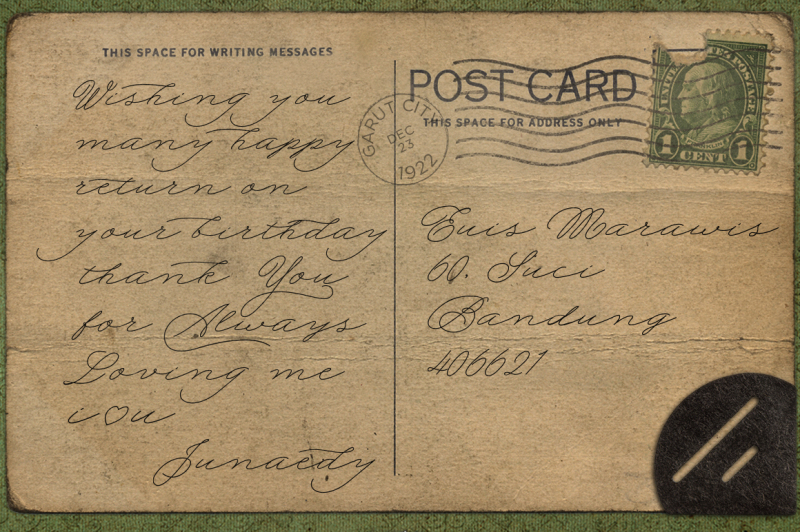 THIS SPACE FOR WRITING MESSAGES
Wishing you
many happy
return on
your birthday
thank You
for Always
Loving me
i♡u
Junaedy
POST CARD
THIS SPACE FOR ADDRESS ONLY
GARUT CITY
DEC
23
1922
1 CENT 1
Euis Marawis
60. Suci
Bandung
406621